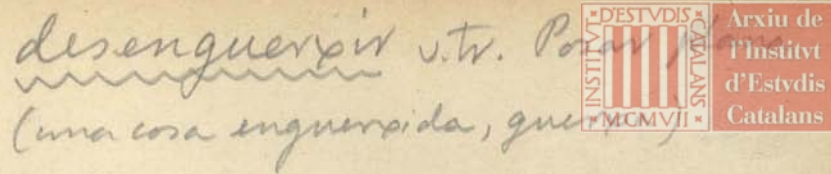 desenguerxir v.tr. Posar plana
(una cosa enguerxida, guerxa)
INSTITVT D'ESTVDIS CATALANS
MCMVII
Arxiu de
l'Institvt
d'Estvdis
Catalans